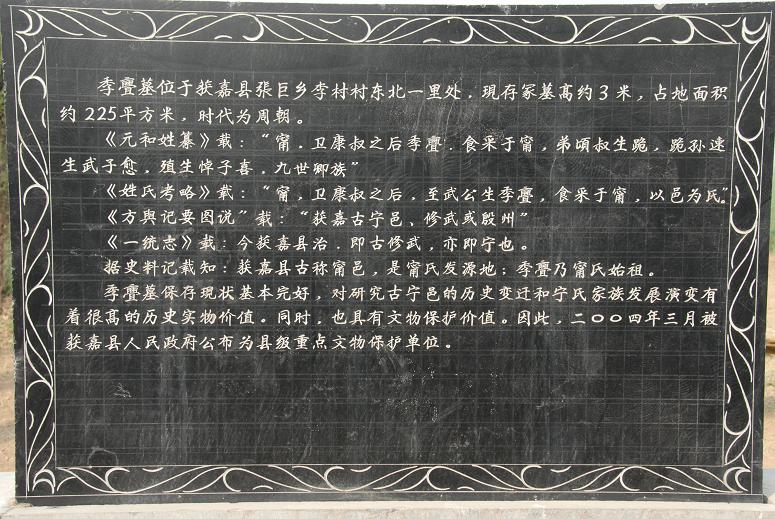 季亹墓位于获嘉县張巨乡李村村东北一里处，現存冢墓髙约3米，占地面积
约225平方米，时代为周朝。
《元和姓纂》载：“甯，卫康叔之后季亹．食采于甯，弟頃叔生跪，跪孙速
生武子愈，殖生悼子喜，九世卿族”
《姓氏考略》载：“甯，卫康叔之后，至武公生季亹，食采于甯，以邑为氏。”
《方舆记要图说”载：“获嘉古宁邑、修武或殷州”
《一统志》载：今获嘉县治．即古修武，亦即宁也。
据史料记载知：获嘉县古称甯邑，是甯氏发源地；季亹乃甯氏始祖。
季亹墓保存現状基本完好，对研究古宁邑的历史变迁和宁氏家族发展演变有
着很髙的历史实物价值。同时，也具有文物保护价值。因此，二〇〇四年三月被
获嘉县人民政府公布为县级重点文物保护单位。